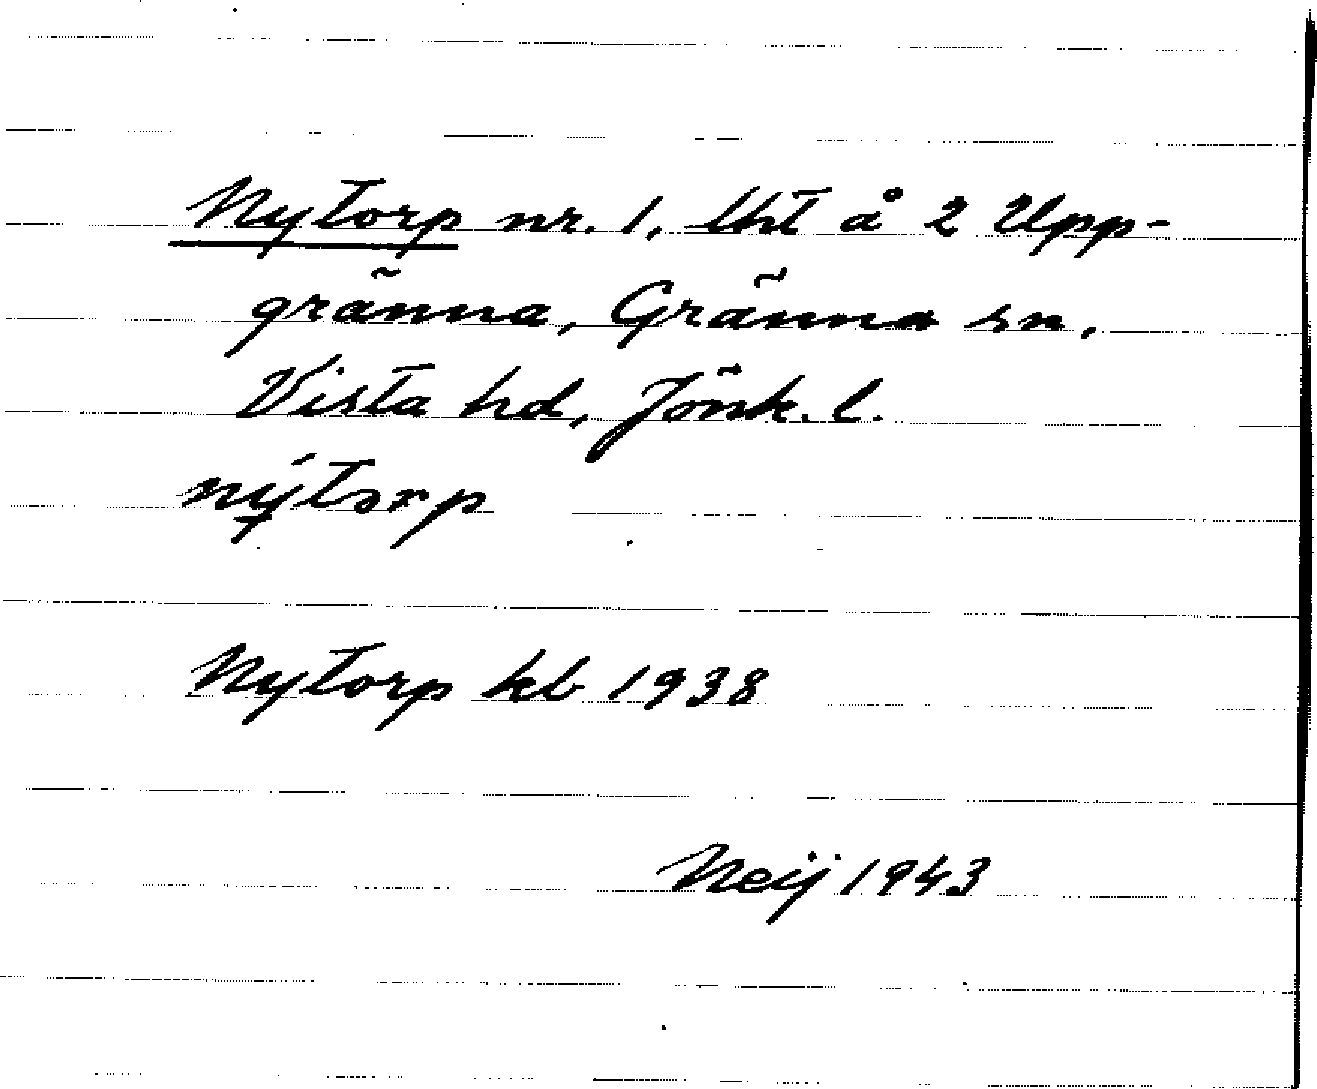 Nytorp nr. 1, lht å 2 Upp-
gränna, Gränna sn,
Vista hd, Jönk. l.
nýtorp
Nytorp kb 1938
Neij 1943